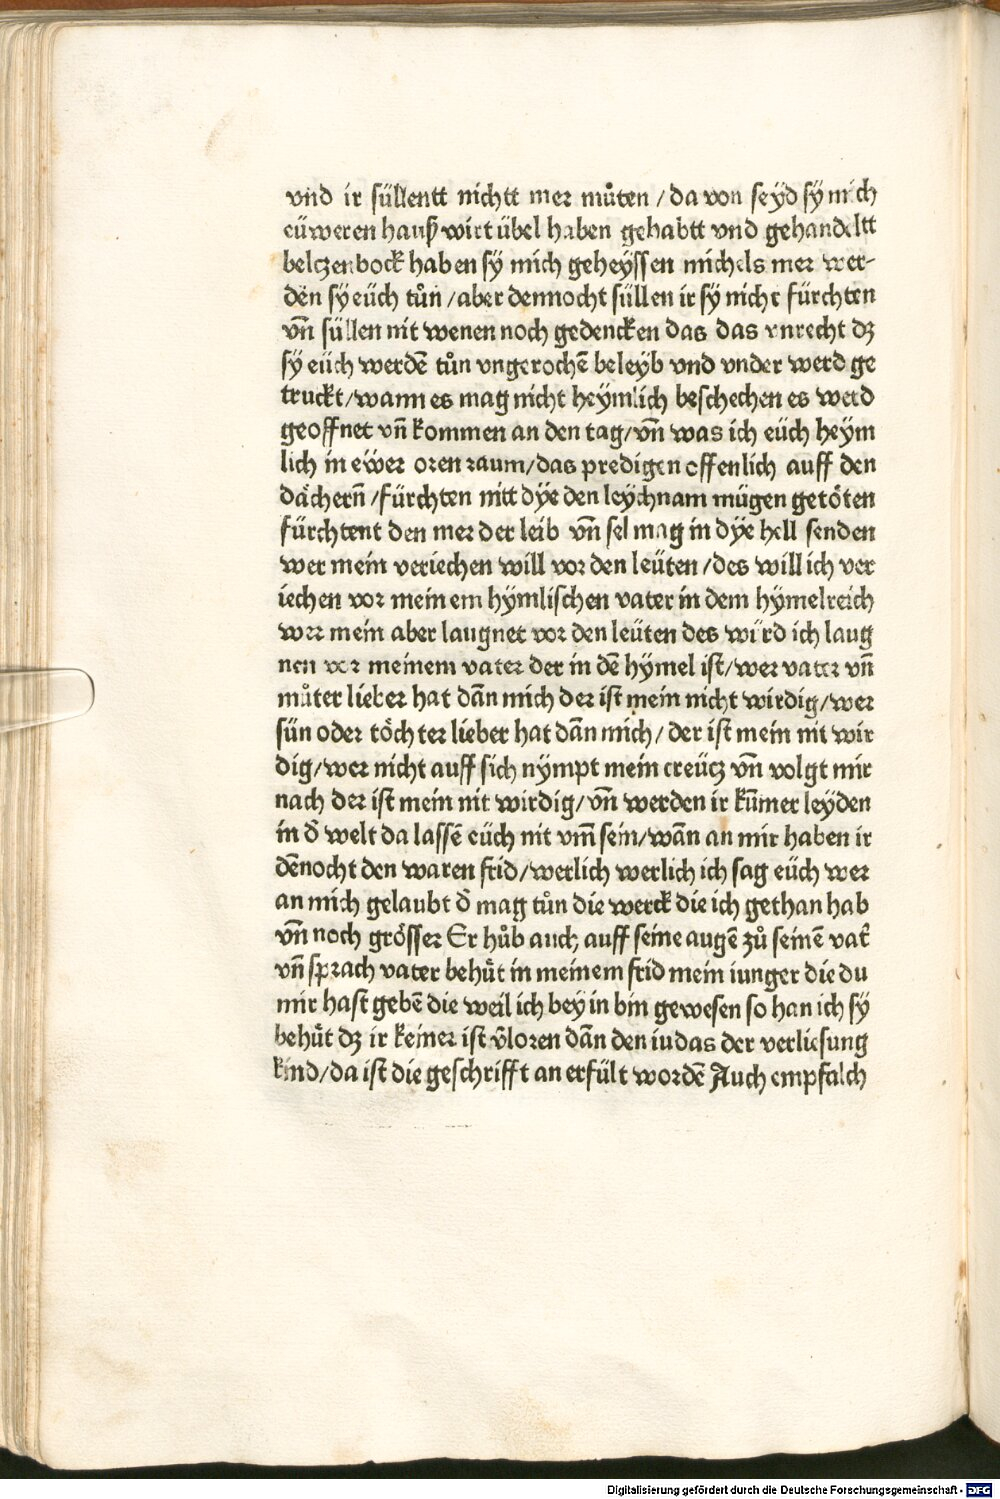 vnd ir süllentt nichtt mer můten / da von seyd sÿ mich
eüweren hauß wirt übel haben gehabtt vnd gehandeltt
belczenbock haben sÿ mich geheÿssen michels mer wer-
den sÿ eüch tůn / aber dennocht süllen ir sÿ nicht fürchten
vñ süllen nit wenen noch gedencken das das vnrecht dz
sÿ eüch werdē tůn vngerochē beleyb vnd vnder werd ge
truckt / wann es mag nicht heÿmlich beschechen es werd
geoffnet vñ kommen an den tag / vñ was ich eüch heÿm
lich in ewer oren raum / das predigen offenlich auff den
dächerñ / fürchten nitt dÿe den leÿchnam mügen getöten
fürchtent den mer der leib vñ sel mag in dÿe hell senden
wer mein veriechen will vor den leüten / des will ich ver
iechen vor meinem hÿmlischen vater in dem hÿmelreich
wer mein aber laugnet vor den leüten des würd ich laug
nen vor meinem vater der in dē hÿmel ist / wer vater vñ
můter lieber hat dañ mich der ist mein nicht wirdig / wer
sün oder töchter lieber hat dañ mich / der ist mein nit wir
dig / wer nicht auff sich nÿmpt mein creücz vñ volgt mir
nach der ist mein nit wirdig / vñ werden ir kum̄er leyden
in d̄ welt da lassē eüch nit vm̄ sein / wañ an mir haben ir
dēnocht den waren frid / werlich werlich ich sag eüch wer
an mich gelaubt d̄ mag tůn die werck die ich gethan hab
vñ noch grösser Er hůb auch auff seine augē zů seinē vat̄
vñ sprach vater behüt in meinem frid mein iunger die du
mir hast gebē die weil ich bey in bin gewesen so han ich sÿ
behüt dz ir keiner ist v̄loren dañ den iudas der verliesung
kind / da ist die geschrifft an erfült wordē Auch empfalch
Digitalisierung gefördert durch die Deutsche Forschungsgemeinschaft - DFG